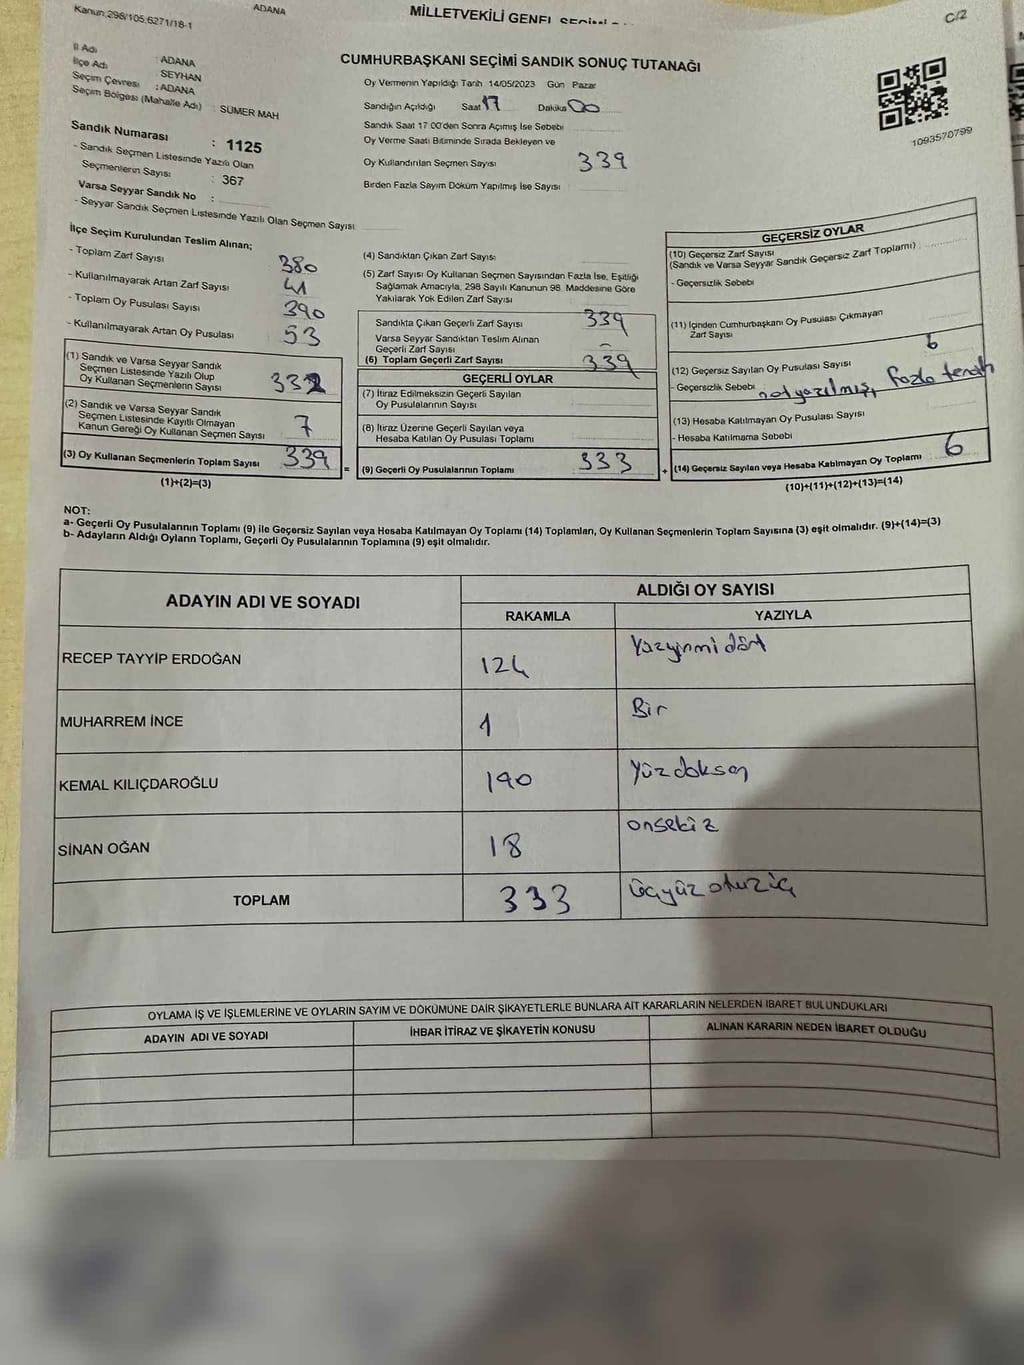 Kanun,298/105,6271/18-1
ADANA
MİLLETVEKİLİ GENEL
C/2
İl Adı : ADANA
İlçe Adı : SEYHAN
Seçim Çevresi : ADANA
Seçim Bölgesi (Mahalle Adı) : SÜMER MAH
Sandık Numarası : 1125
- Sandık Seçmen Listesinde Yazılı Olan
Seçmenlerin Sayısı : 367
Varsa Seyyar Sandık No :
- Seyyar Sandık Seçmen Listesinde Yazılı Olan Seçmen Sayısı
CUMHURBAŞKANI SEÇİMİ SANDIK SONUÇ TUTANAĞI
Oy Vermenin Yapıldığı Tarih 14/05/2023 Gün Pazar
Sandığın Açıldığı Saat 17 Dakika 00
Sandık Saat 17:00'den Sonra Açımış İse Sebebi
Oy Verme Saati Bitiminde Sırada Bekleyen ve
Oy Kullandırılan Seçmen Sayısı 339
Birden Fazla Sayım Döküm Yapılmış İse Sayısı
1093570799
İlçe Seçim Kurulundan Teslim Alınan;
- Toplam Zarf Sayısı 380
- Kullanılmayarak Artan Zarf Sayısı 41
- Toplam Oy Pusulası Sayısı 390
- Kullanılmayarak Artan Oy Pusulası 53
(1) Sandık ve Varsa Seyyar Sandık
Seçmen Listesinde Yazılı Olup
Oy Kullanan Seçmenlerin Sayısı 332
(2) Sandık ve Varsa Seyyar Sandık
Seçmen Listesinde Kayıtlı Olmayan
Kanun Gereği Oy Kullanan Seçmen Sayısı 7
(3) Oy Kullanan Seçmenlerin Toplam Sayısı 339
(1)+(2)=(3)
=
(4) Sandıktan Çıkan Zarf Sayısı
(5) Zarf Sayısı Oy Kullanan Seçmen Sayısından Fazla İse, Eşitliği
Sağlamak Amacıyla, 298 Sayılı Kanunun 98. Maddesine Göre
Yakılarak Yok Edilen Zarf Sayısı
Sandıkta Çıkan Geçerli Zarf Sayısı 339
Varsa Seyyar Sandıktan Teslim Alınan
Geçerli Zarf Sayısı -
(6) Toplam Geçerli Zarf Sayısı 339
GEÇERLİ OYLAR
(7) İtiraz Edilmeksizin Geçerli Sayılan
Oy Pusulalarının Sayısı
(8) İtiraz Üzerine Geçerli Sayılan veya
Hesaba Katılan Oy Pusulası Toplamı
(9) Geçerli Oy Pusulalarının Toplamı 333
+
GEÇERSİZ OYLAR
(10) Geçersiz Zarf Sayısı
(Sandık ve Varsa Seyyar Sandık Geçersiz Zarf Toplamı)
- Geçersizlik Sebebi
(11) İçinden Cumhurbaşkanı Oy Pusulası Çıkmayan
Zarf Sayısı
(12) Geçersiz Sayılan Oy Pusulası Sayısı 6
- Geçersizlik Sebebi not yazılmış, fazla
(13) Hesaba Katılmayan Oy Pusulası Sayısı
- Hesaba Katılmama Sebebi
(14) Geçersiz Sayılan veya Hesaba Katılmayan Oy Toplamı 6
(10)+(11)+(12)+(13)=(14)
NOT:
a- Geçerli Oy Pusulalarının Toplamı (9) ile Geçersiz Sayılan veya Hesaba Katılmayan Oy Toplamı (14) Toplamları, Oy Kullanan Seçmenlerin Toplam Sayısına (3) eşit olmalıdır. (9)+(14)=(3)
b- Adayların Aldığı Oyların Toplamı, Geçerli Oy Pusulalarının Toplamına (9) eşit olmalıdır.
ADAYIN ADI VE SOYADI
ALDIĞI OY SAYISI
RAKAMLA YAZIYLA
RECEP TAYYİP ERDOĞAN 124 Yüzyirmi dört
MUHARREM İNCE 1 Bir
KEMAL KILIÇDAROĞLU 190 Yüz doksan
SİNAN OĞAN 18 onsekiz
TOPLAM 333 üçyüz otuz üç
OYLAMA İŞ VE İŞLEMLERİNE VE OYLARIN SAYIM VE DÖKÜMÜNE DAİR ŞİKAYETLERLE BUNLARA AİT KARARLARIN NELERDEN İBARET BULUNDUKLARI
ADAYIN ADI VE SOYADI
İHBAR İTİRAZ VE ŞİKAYETİN KONUSU
ALINAN KARARIN NEDEN İBARET OLDUĞU